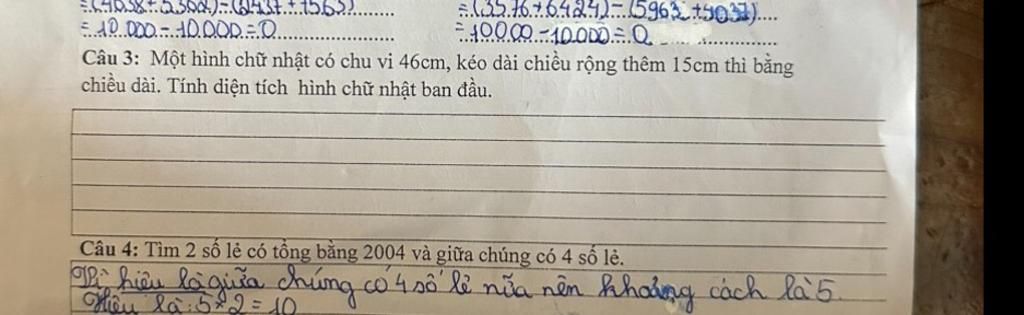 =(4638+5362)-(2437+7563)
=(3576+6424)-(5963+4037)
=10.000-10.000=0
=10000-10000=0
Câu 3: Một hình chữ nhật có chu vi 46cm, kéo dài chiều rộng thêm 15cm thì bằng
chiều dài. Tính diện tích hình chữ nhật ban đầu.
Câu 4: Tìm 2 số lẻ có tổng bằng 2004 và giữa chúng có 4 số lẻ.
hiệu là giữa chúng có 4 số lẻ nữa nên khoảng cách là 5.
Hiệu là: 5*2=10